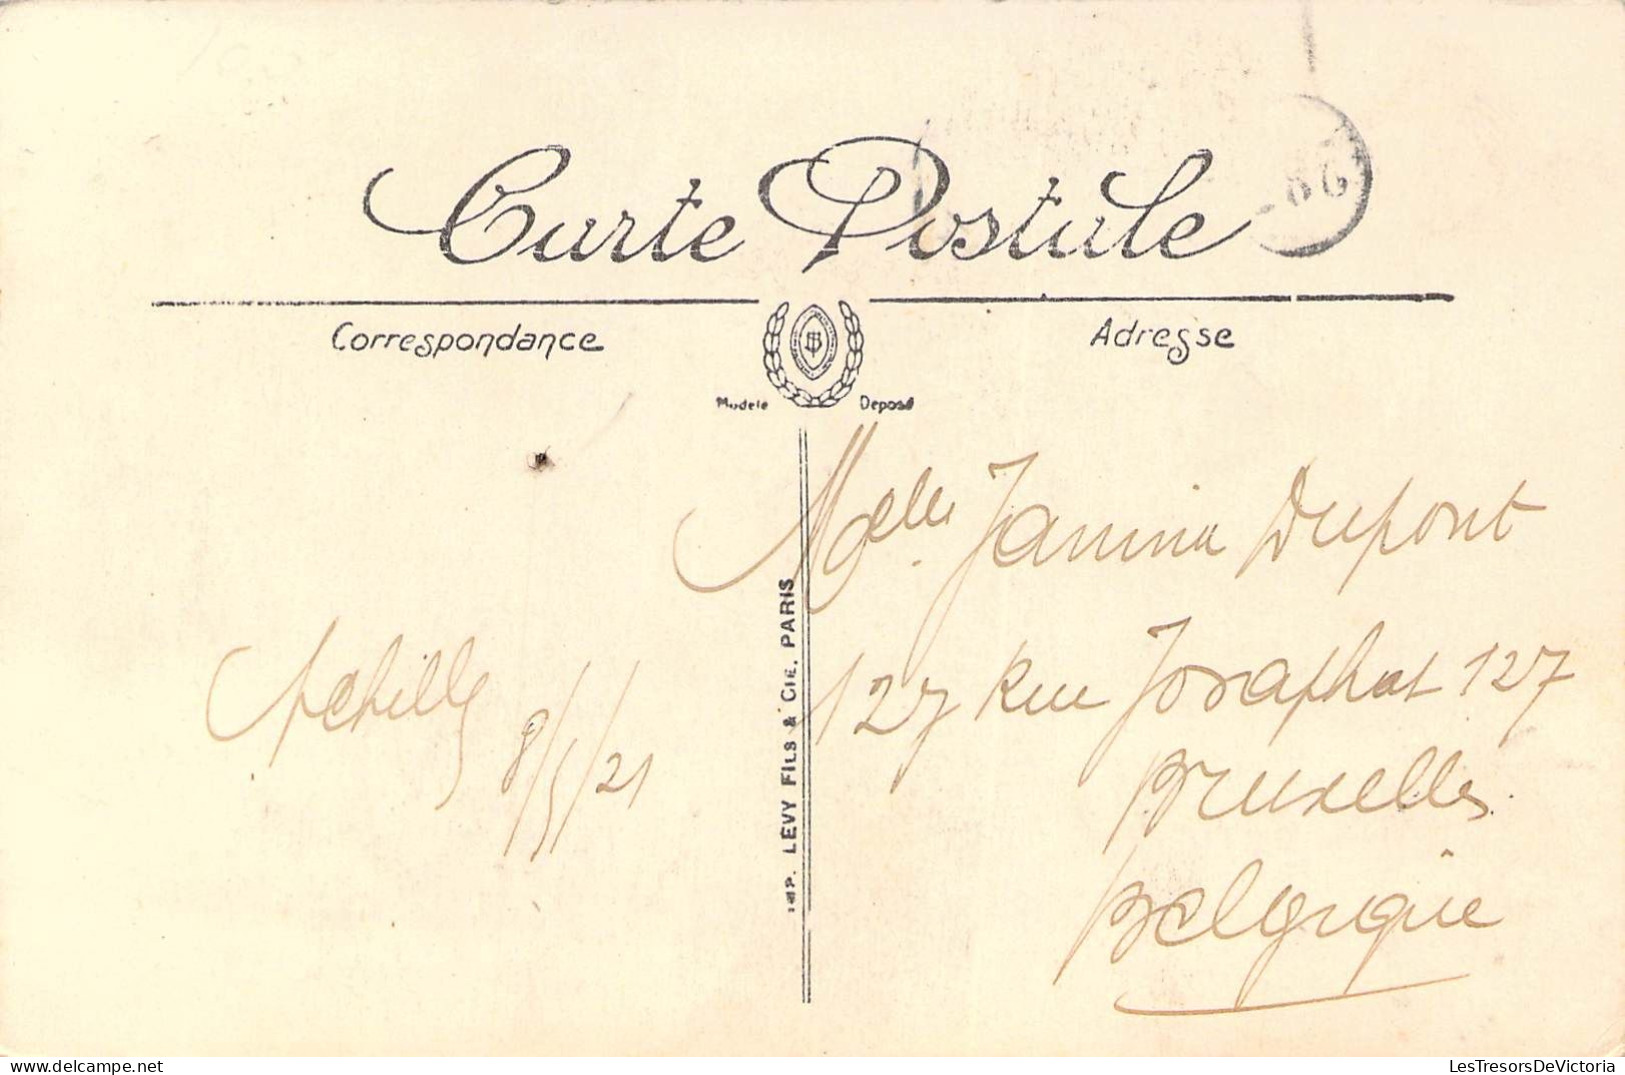 Carte Postale
Correspondance
Adresse
Modèle Déposé
IMP. LÉVY FILS & CIE. PARIS
Melle Janina Dupont
127 Rue Josaphat 127
Bruxelles.
Belgique
Achille
8/5/21
LesTresorsDeVictoria